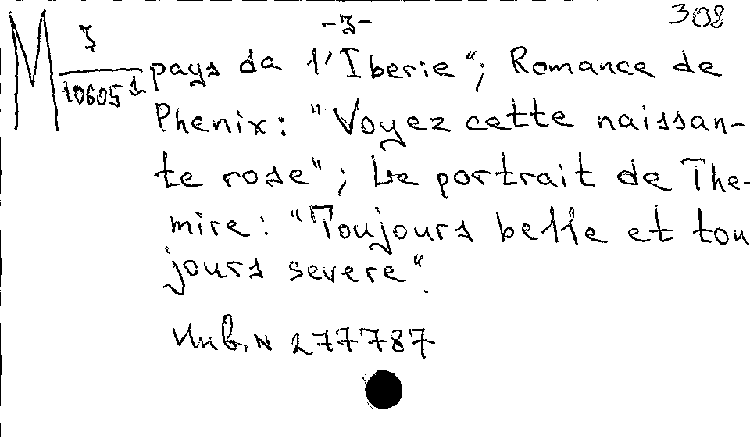 -3-
308
M 3/10605 1
pays de l'Iberie"; Romance de
Phenix: "Voyez cette naissan-
te rose"; Le portrait de The-
mire: "Toujours belle et tou
jours severe".
Инв.№ 277787